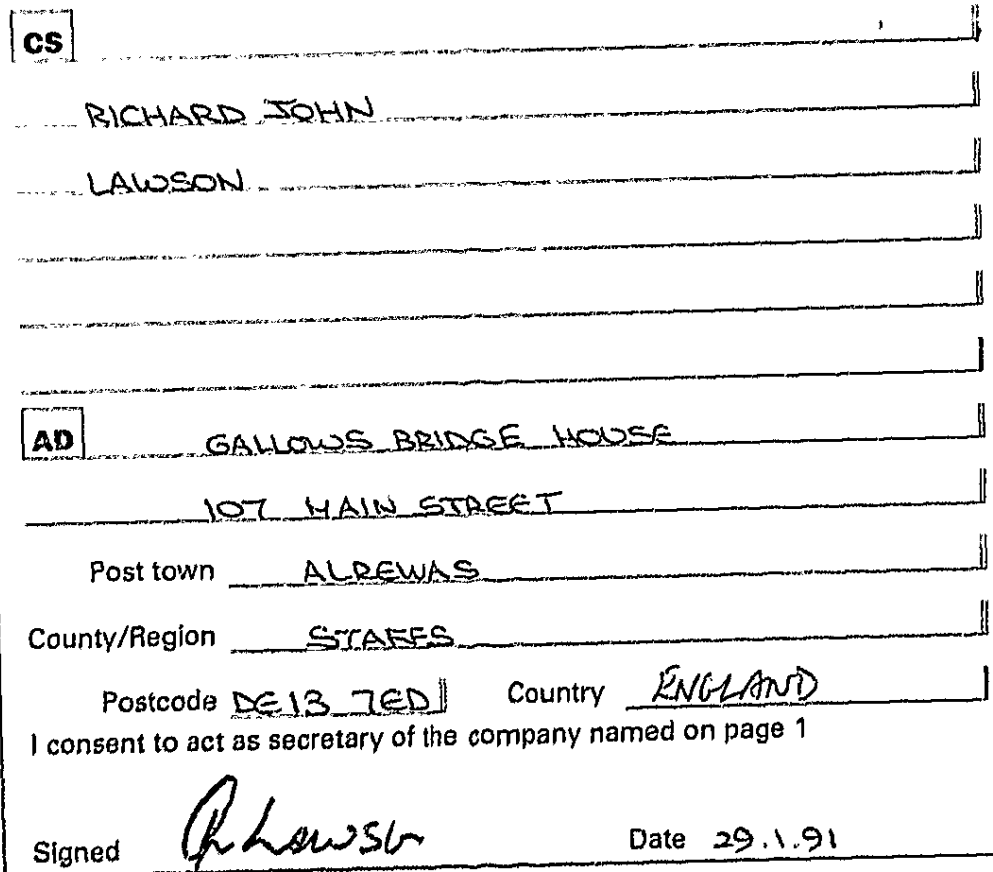 CS
RICHARD JOHN
LAWSON
AD GALLOWS BRIDGE HOUSE
107 MAIN STREET
Post town ALREWAS
County/Region STAFFS
Postcode DE13 7ED Country ENGLAND
I consent to act as secretary of the company named on page 1
Signed R Lawson Date 29.1.91